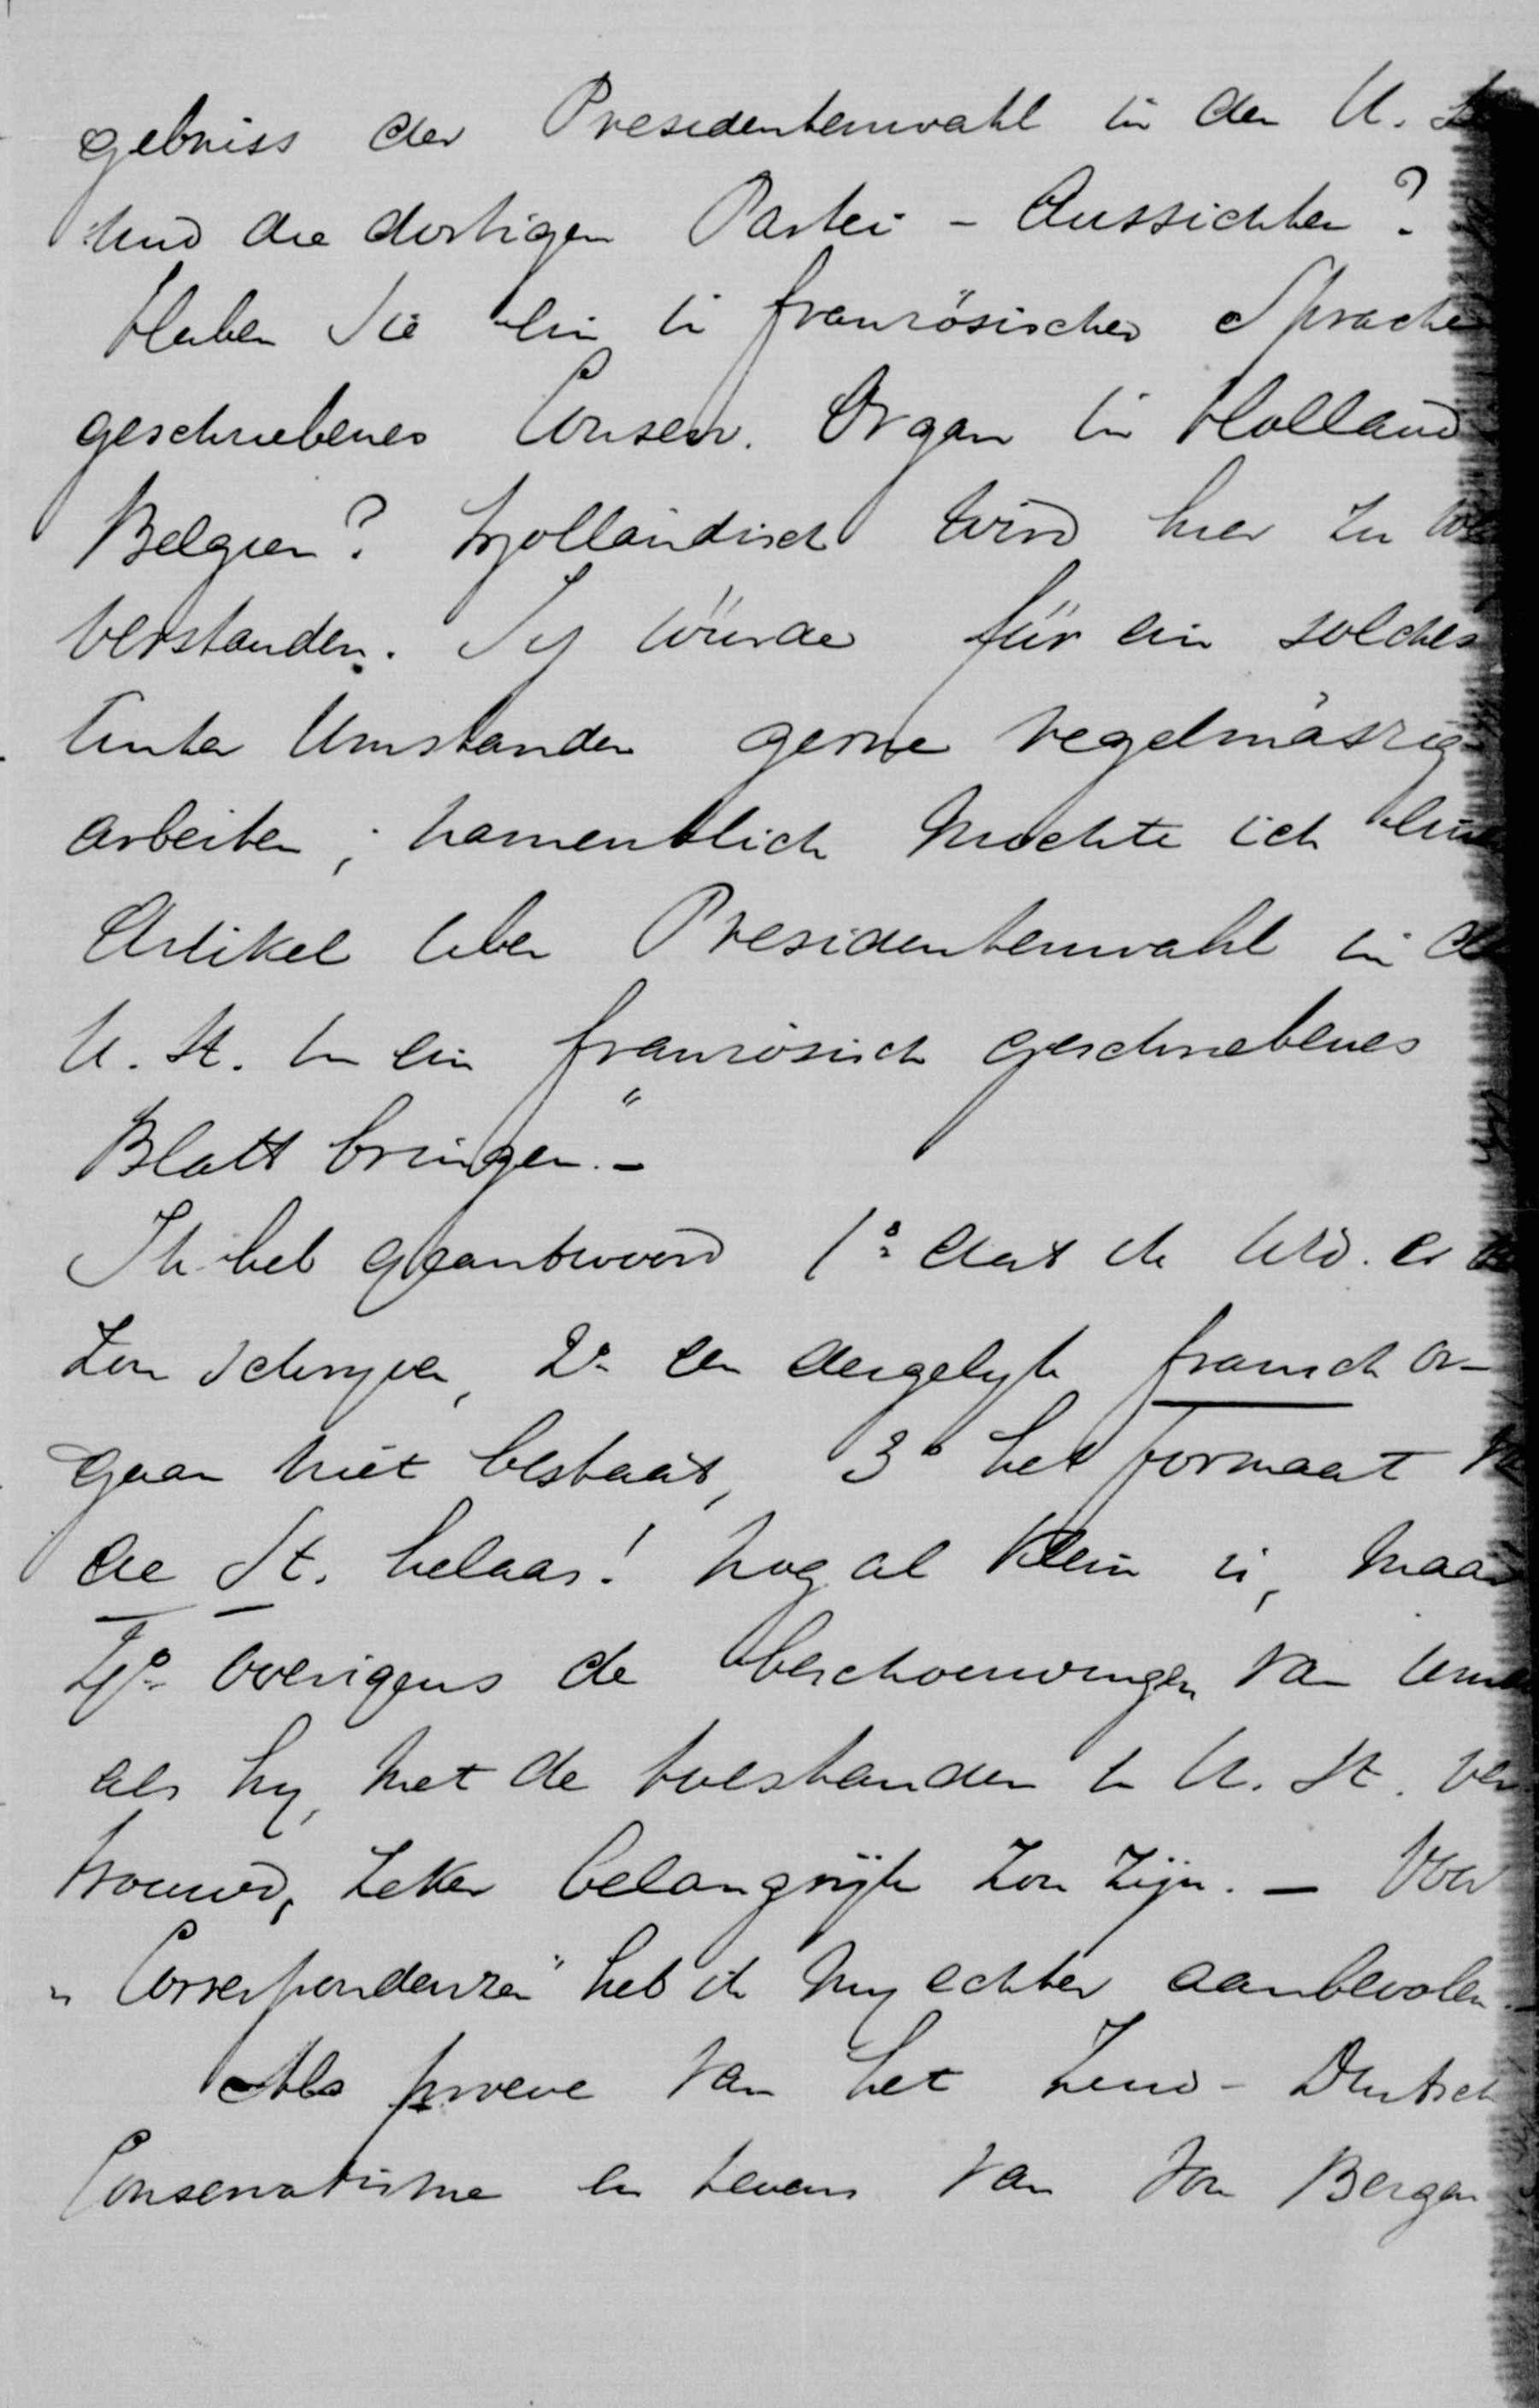 gebniss der Presidentenwahl in den U. St
und die dortigen Partei - Aussichten?
Haben Sie ein in französischer Sprache
geschriebenes Conserv. Organ in Holland
Belgien? Holländisch wird hier zu
verstanden. Ich würde für ein solches
unter Umstanden gerne regelmässig
arbeiten; namentlich mochte ich
Artikel uber Presidentenwahl in
U. St. in ein französisch geschriebenes
Blatt bringen." -
Ik heb geantwoord 1º dat ik U.W. er
zou schryven, 2º een dergelyk fransch or-
gaan niet bestaat, 3º het formaat
de St. helaas! nog al klein is, maar
4º overigens de beschouwingen van
als hy, met de toestanden in U. St. ver-
trouwd, zeker belangrijk zou zijn. - Voor
"Correspondenzen" heb ik my echter aanbevolen. -
Als proeve van het Zuid - Duitsch
Conservatisme en tevens van von Bergen